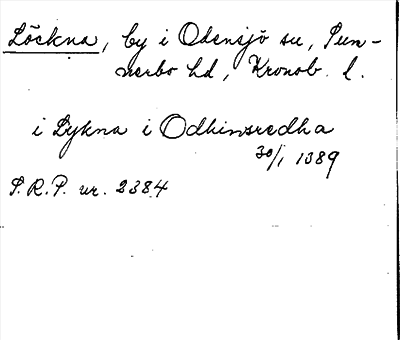 Löckna, by i Odensjö su, Sun-
nerbo hd, Kronob. l.
i Lykna i Odhinsredha
30/1 1389
S.R.P. nr. 2384